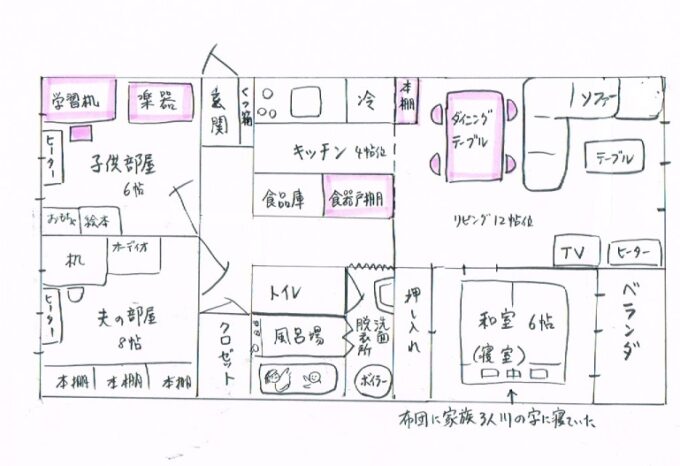 学習机
楽器
玄関
くつ箱
冷
本棚
ダイニング
テーブル
ソファー
テーブル
ヒーター
子供部屋
6帖
キッチン 4帖位
食品庫
食器戸棚
リビング12帖位
おもちゃ
絵本
TV
ヒーター
机
オーディオ
トイレ
押し入れ
和室 6帖
(寝室)
ベランダ
ヒーター
夫の部屋
8帖
クロゼット
風呂場
洗面
脱衣所
ボイラー
本棚
本棚
本棚
布団に家族3人川の字に寝ていた